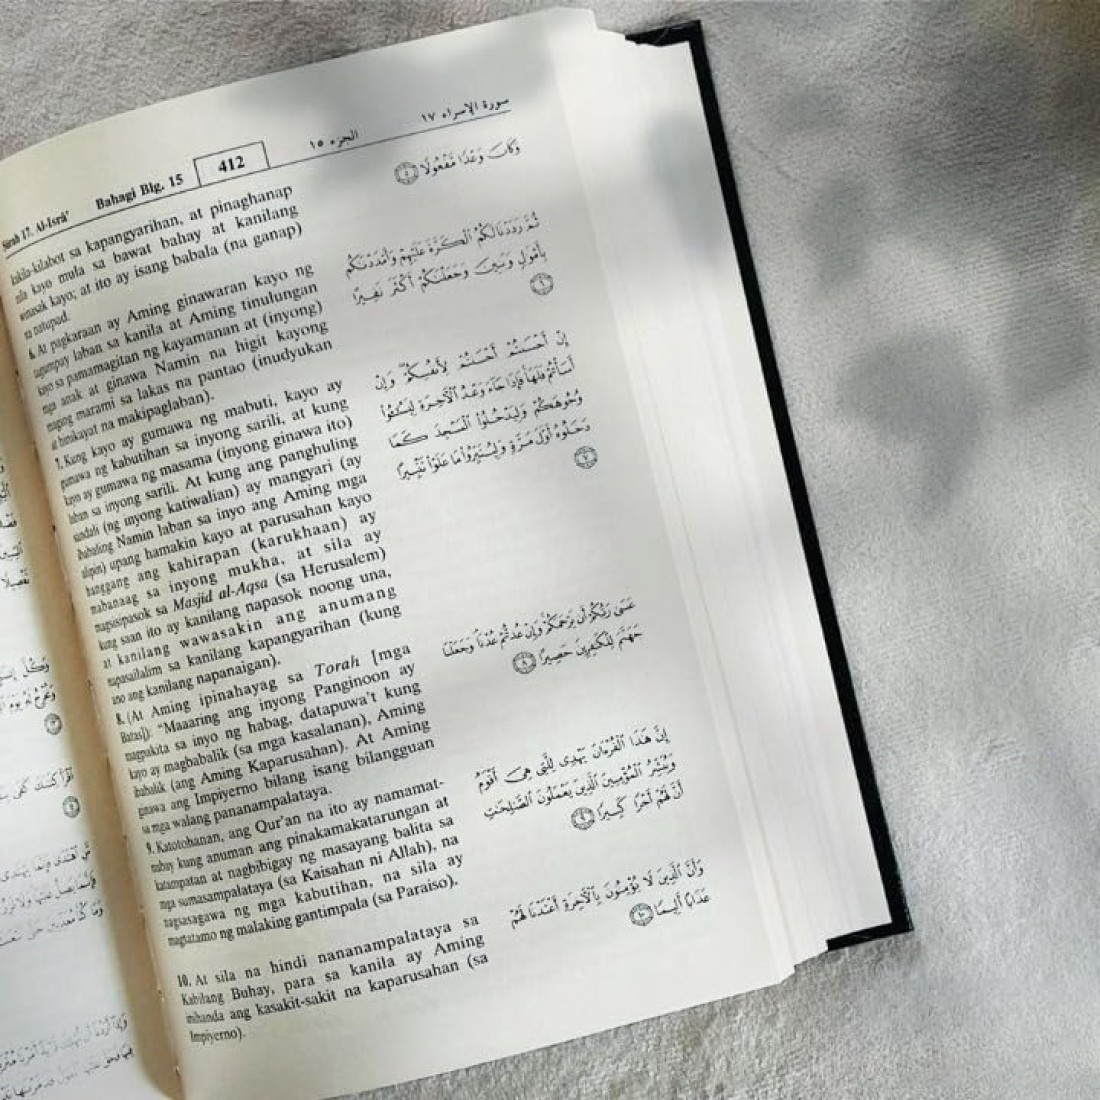 Sûrah 17. Al-Isrâ'
Bahagi Blg. 15
412
الجزء ١٥
سورة الإسراء ١٧
kakila-kilabot sa kapangyarihan, at pinaghanap
nila kayo mula sa bawat bahay at kanilang
winasak kayo; at ito ay isang babala (na ganap)
na natupad.
6. At pagkaraan ay Aming ginawaran kayo ng
tagumpay laban sa kanila at Aming tinulungan
kayo sa pamamagitan ng kayamanan at (inyong)
mga anak at ginawa Namin na higit kayong
maging marami sa lakas na pantao (inudyukan
at hinikayat na makipaglaban).
7. Kung kayo ay gumawa ng mabuti, kayo ay
gumawa ng kabutihan sa inyong sarili, at kung
kayo ay gumawa ng masama (inyong ginawa ito)
laban sa inyong sarili. At kung ang panghuling
sandali (ng inyong katiwalian) ay mangyari (ay
ibabaling Namin laban sa inyo ang Aming mga
alipin) upang hamakin kayo at parusahan kayo
hanggang ang kahirapan (karukhaan) ay
mabanaag sa inyong mukha, at sila ay
magsisipasok sa Masjid al-Aqsa (sa Herusalem)
kung saan ito ay kanilang napasok noong una,
at kanilang wawasakin ang anumang
napasailalim sa kanilang kapangyarihan (kung
ano ang kanilang napanaigan).
8. (At Aming ipinahayag sa Torah [mga
Batas]): “Maaaring ang inyong Panginoon ay
magpakita sa inyo ng habag, datapuwa't kung
kayo ay magbabalik (sa mga kasalanan), Aming
ibabalik (ang Aming Kaparusahan). At Aming
ginawa ang Impiyerno bilang isang bilangguan
sa mga walang pananampalataya.
9. Katotohanan, ang Qur'an na ito ay namamat-
nubay kung anuman ang pinakamakatarungan at
katampatan at nagbibigay ng masayang balita sa
mga sumasampalataya (sa Kaisahan ni Allah), na
nagsasagawa ng mga kabutihan, na sila ay
magtatamo ng malaking gantimpala (sa Paraiso).
10. At sila na hindi nananampalataya sa
Kabilang Buhay, para sa kanila ay Aming
inihanda ang kasakit-sakit na kaparusahan (sa
Impiyerno).
وَكَانَ وَعْدًا مَّفْعُولًا ٥
ثُمَّ رَدَدْنَا لَكُمُ ٱلْكَرَّةَ عَلَيْهِمْ وَأَمْدَدْنَٰكُم
بِأَمْوَٰلٍ وَبَنِينَ وَجَعَلْنَٰكُمْ أَكْثَرَ نَفِيرًا
٦
إِنْ أَحْسَنتُمْ أَحْسَنتُمْ لِأَنفُسِكُمْ وَإِنْ
أَسَأْتُمْ فَلَهَا فَإِذَا جَآءَ وَعْدُ ٱلْءَاخِرَةِ لِيَسُۥٓـُٔوا۟
وُجُوهَكُمْ وَلِيَدْخُلُوا۟ ٱلْمَسْجِدَ كَمَا
دَخَلُوهُ أَوَّلَ مَرَّةٍ وَلِيُتَبِّرُوا۟ مَا عَلَوْا۟ تَتْبِيرًا
٧
عَسَىٰ رَبُّكُمْ أَن يَرْحَمَكُمْ وَإِنْ عُدتُّمْ عُدْنَا وَجَعَلْنَا
جَهَنَّمَ لِلْكَٰفِرِينَ حَصِيرًا ٨
إِنَّ هَٰذَا ٱلْقُرْءَانَ يَهْدِى لِلَّتِى هِىَ أَقْوَمُ
وَيُبَشِّرُ ٱلْمُؤْمِنِينَ ٱلَّذِينَ يَعْمَلُونَ ٱلصَّٰلِحَٰتِ
أَنَّ لَهُمْ أَجْرًا كَبِيرًا ٩
وَأَنَّ ٱلَّذِينَ لَا يُؤْمِنُونَ بِٱلْءَاخِرَةِ أَعْتَدْنَا لَهُمْ
عَذَابًا أَلِيمًا ١٠